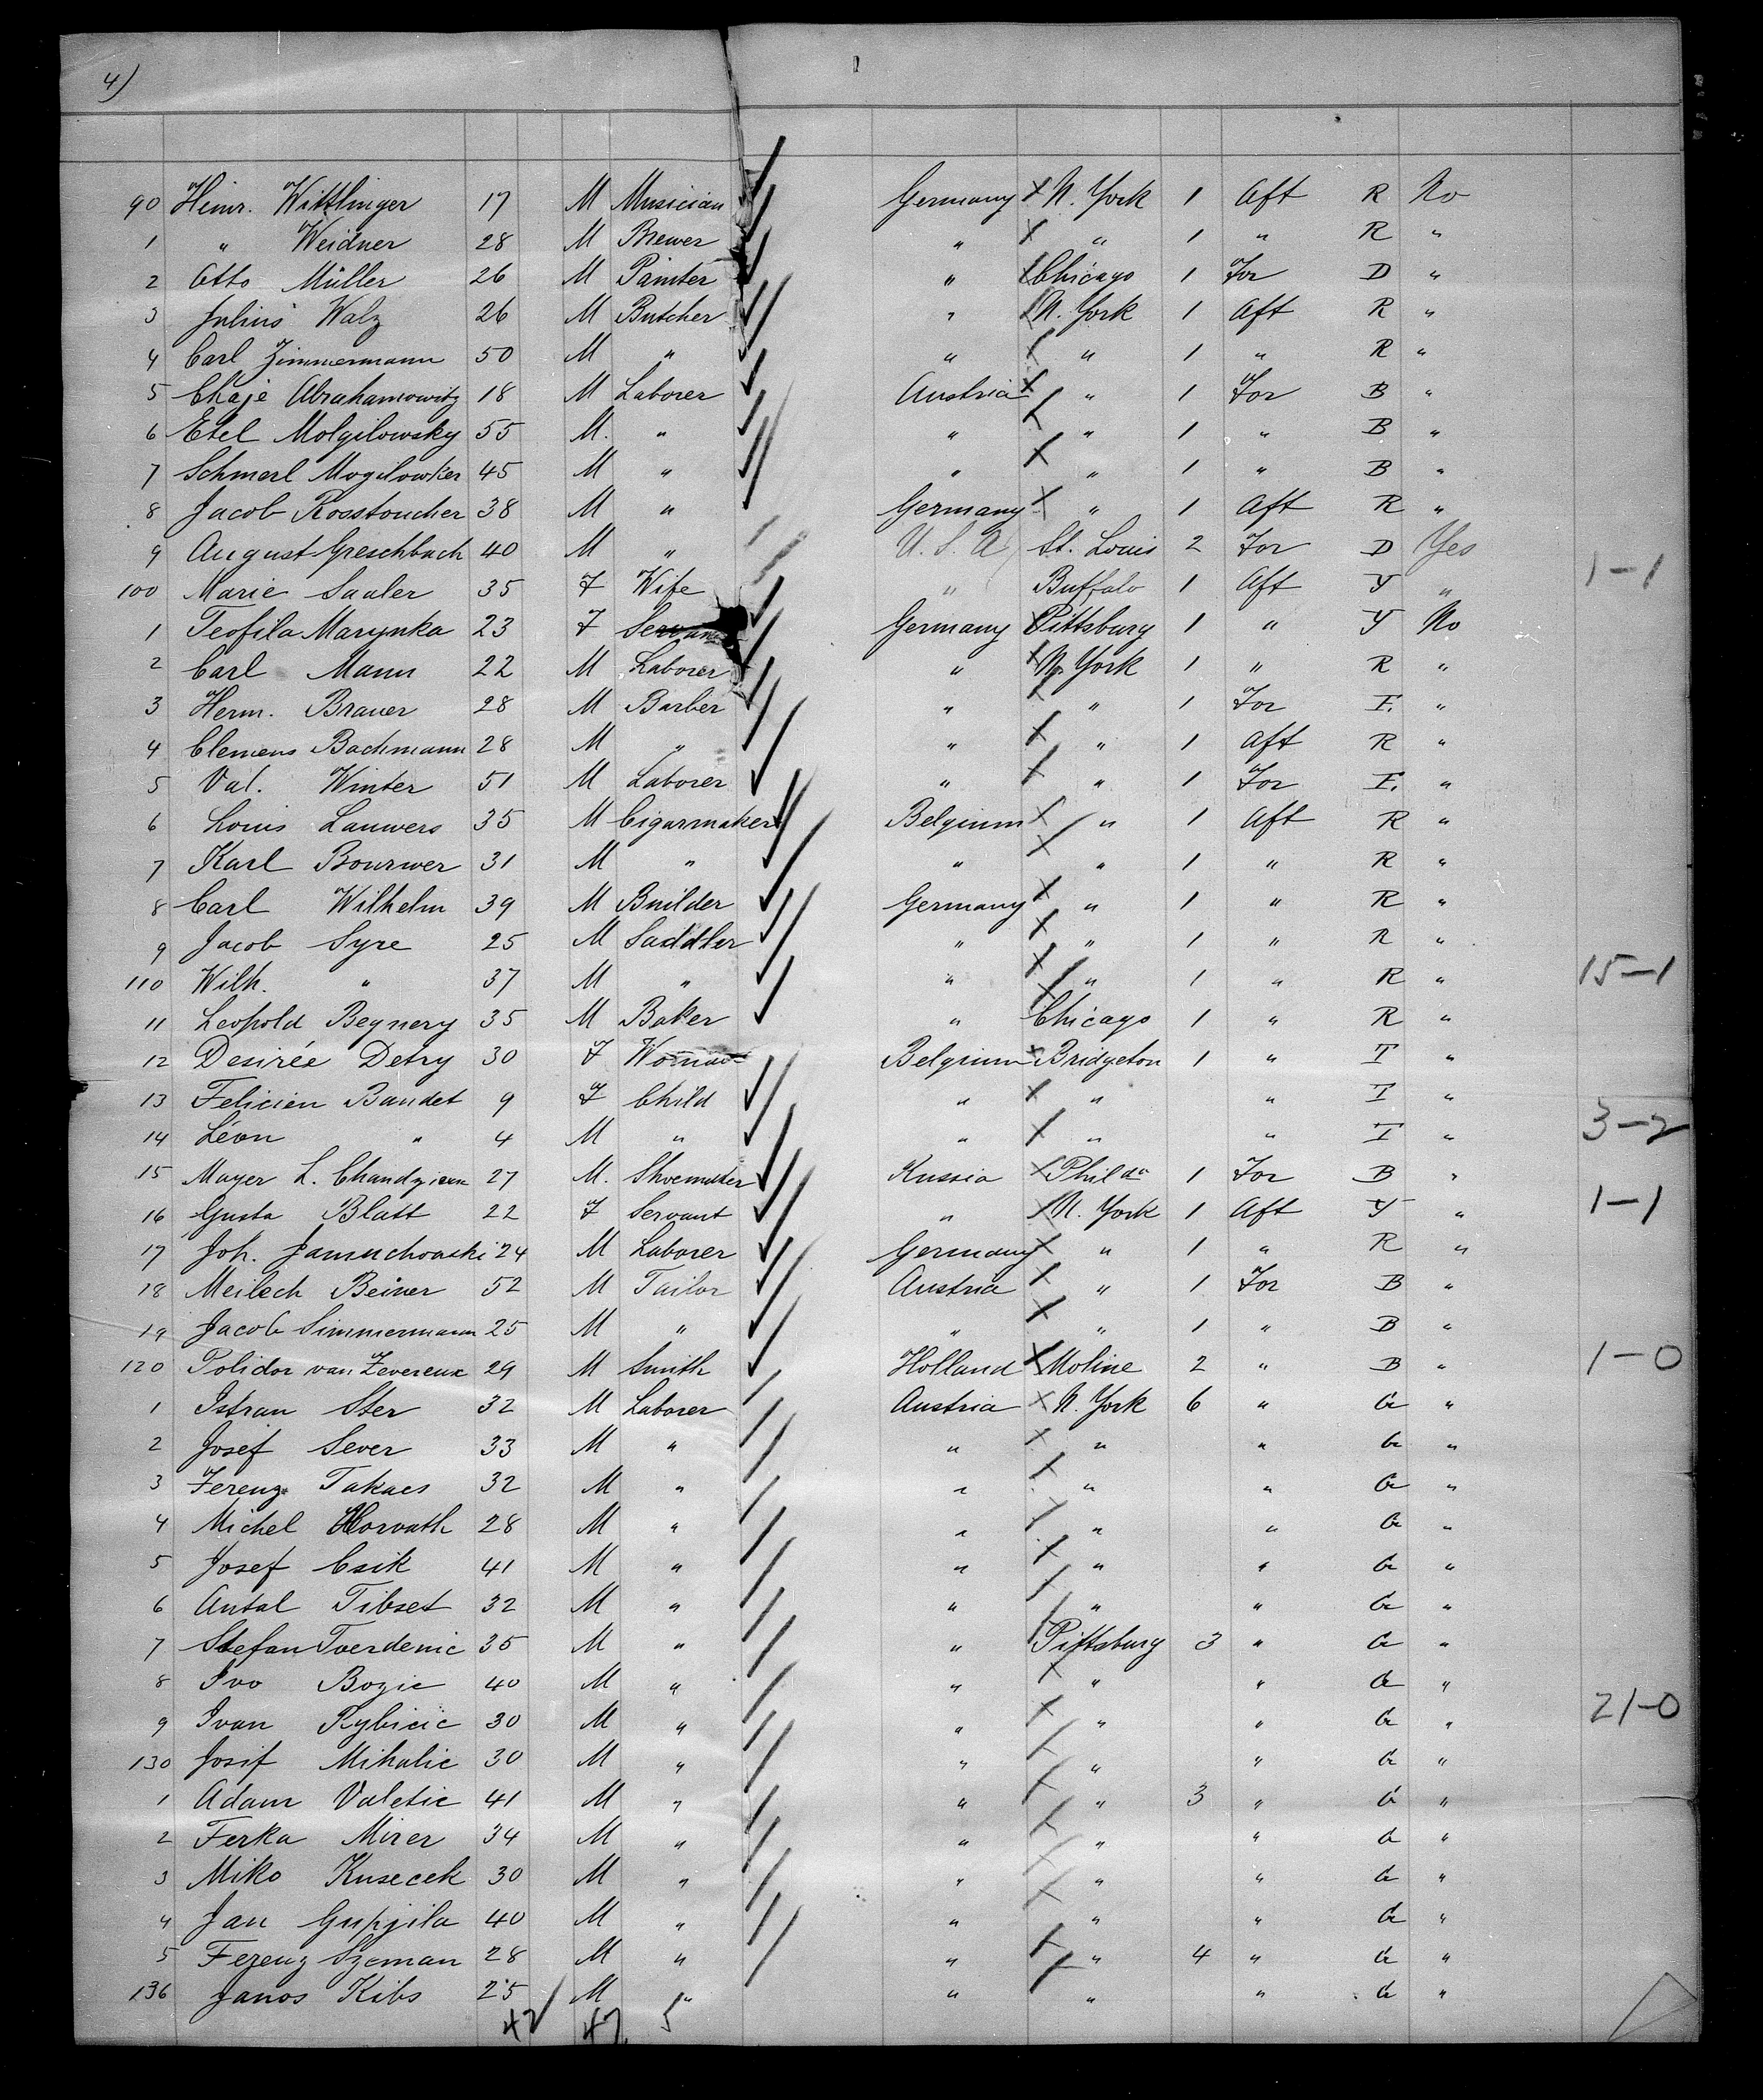 4)
90 Heinr. Wittlinger 17 M Musician Germany X N. York 1 Aft R No
1 " Weidner 28 M Brewer " X " 1 " R "
2 Otto Müller 26 M Painter " X Chicago 1 For D "
3 Julius Walz 26 M Butcher " X N. York 1 Aft R "
4 Carl Zimmermann 50 M " " X " 1 " R "
5 Chaje Abrahamowitz 18 M Laborer Austria X " 1 For B "
6 Etel Molgilowsky 55 M. " " X " 1 " B "
7 Schmerl Mogilowker 45 M " " X " 1 " B "
8 Jacob Rosstoucher 38 M " Germany X " 1 Aft R "
9 August Greschbach 40 M " U. S. A St. Louis 2 For D Yes
1-1
100 Marie Sauler 35 F Wife " Buffalo 1 Aft Y "
1 Teofila Marynka 23 F Servant Germany X Pittsburg 1 " Y No
2 Carl Mann 22 M Laborer " X N. York 1 " R "
3 Herm. Brauer 28 M Barber " X " 1 For F. "
4 Clemens Bachmann 28 M " " X " 1 Aft R "
5 Val. Winter 51 M Laborer " X " 1 For F. "
6 Louis Lauwers 35 M Cigarmaker Belgium X " 1 Aft R "
7 Karl Bourwer 31 M " " X " 1 " R "
8 Carl Wilhelm 39 M Builder Germany X " 1 " R "
9 Jacob Syre 25 M Saddler " X " 1 " R "
110 Wilh. " 37 M " " X " 1 " R " 15-1
11 Leopold Begnery 35 M Baker " X Chicago 1 " R "
12 Desirée Detry 30 F Woman Belgium X Bridgeton 1 " I "
13 Felicien Baudet 9 F Child " X " " I "
14 Léon " 4 M " " X " " I " 3-2
15 Mayer L. 27 M. Shoemaker Russia X Philda 1 For B "
16 Gusta Blatt 22 F Servant " X N. York 1 Aft Y " 1-1
17 Joh. Januchowski 24 M Laborer Germany X " 1 " R "
18 Meilech Beiner 52 M Tailor Austria X " 1 For B "
19 Jacob Simmermann 25 M " " X " 1 " B "
120 Polidor van Zevereux 29 M Smith Holland X Moline 2 " B " 1-0
1 Istran Ster 32 M Laborer Austria X N. York 6 " G "
2 Josef Sever 33 M " " X " " G "
3 Ferenz Takacs 32 M " " X " " G "
4 Michel Horvath 28 M " " X " " G "
5 Josef Csik 41 M " " X " " G "
6 Antal Tibset 32 M " " X " " G "
7 Stefan Tverdenic 35 M " " X Pittsburg 3 " G "
8 Ivo Bozic 40 M " " X " " G "
9 Ivan Rybicic 30 M " " X " " G " 21-0
130 Josif Mihalic 30 M " " X " " G "
1 Adam Valetic 41 M " " X " 3 " G "
2 Ferka Mirer 34 M " " X " " G "
3 Miko Kusecek 30 M " " X " " G "
4 Jan Gupjila 40 M " " X " " G "
5 Ferenz Szeman 28 M " " X " 4 " G "
136 Janos Kibs 25 M " " X " " G "
42 47 5